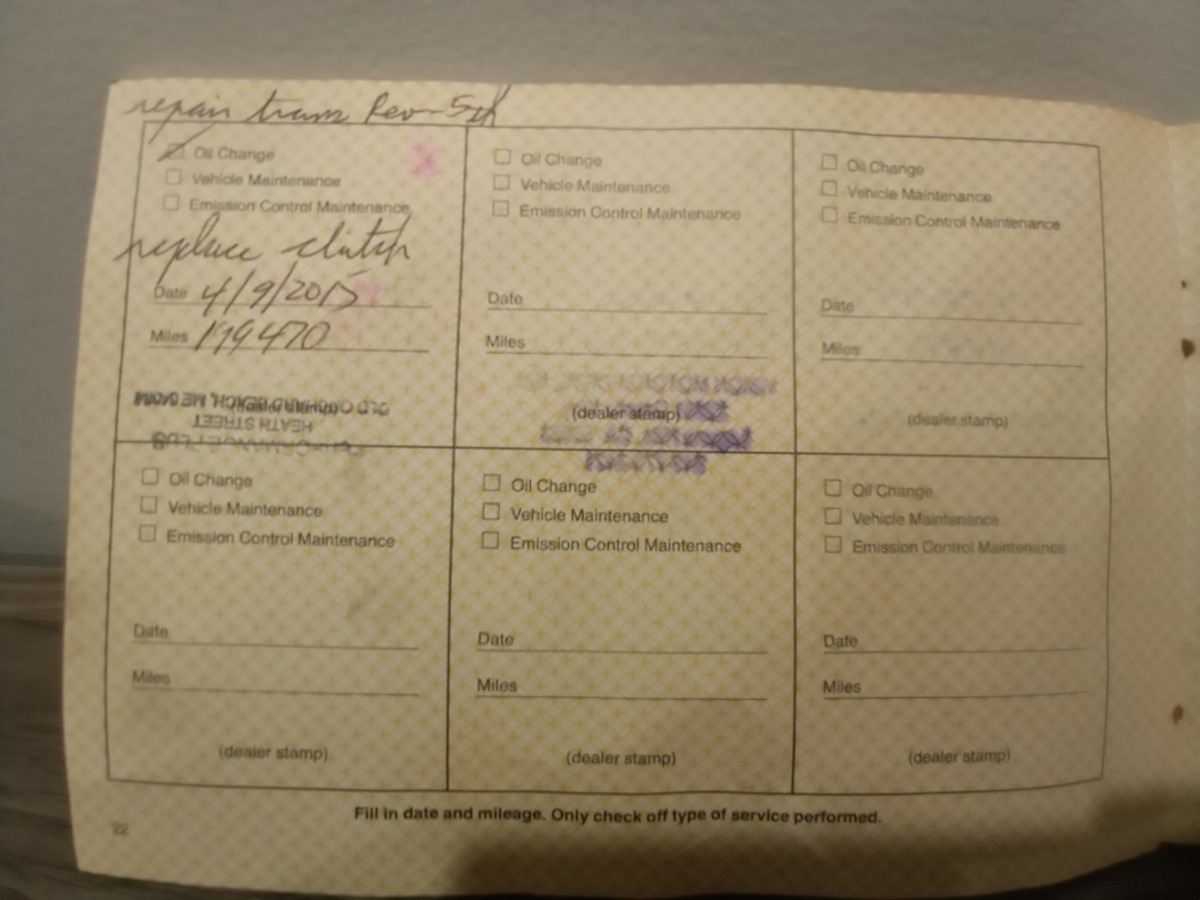 repair trans Rev-5th
Oil Change
Vehicle Maintenance
Emission Control Maintenance
replace clutch
Date 4/9/2015
Miles 179470
(dealer stamp)
OLD ORCHARD BEACH, ME
HEATH STREET
Oil Change
Vehicle Maintenance
Emission Control Maintenance
Date
Miles
(dealer stamp)
Oil Change
Vehicle Maintenance
Emission Control Maintenance
Date
Miles
(dealer stamp)
Oil Change
Vehicle Maintenance
Emission Control Maintenance
Date
Miles
(dealer stamp)
Oil Change
Vehicle Maintenance
Emission Control Maintenance
Date
Miles
(dealer stamp)
Oil Change
Vehicle Maintenance
Emission Control Maintenance
Date
Miles
(dealer stamp)
Fill in date and mileage. Only check off type of service performed.
22